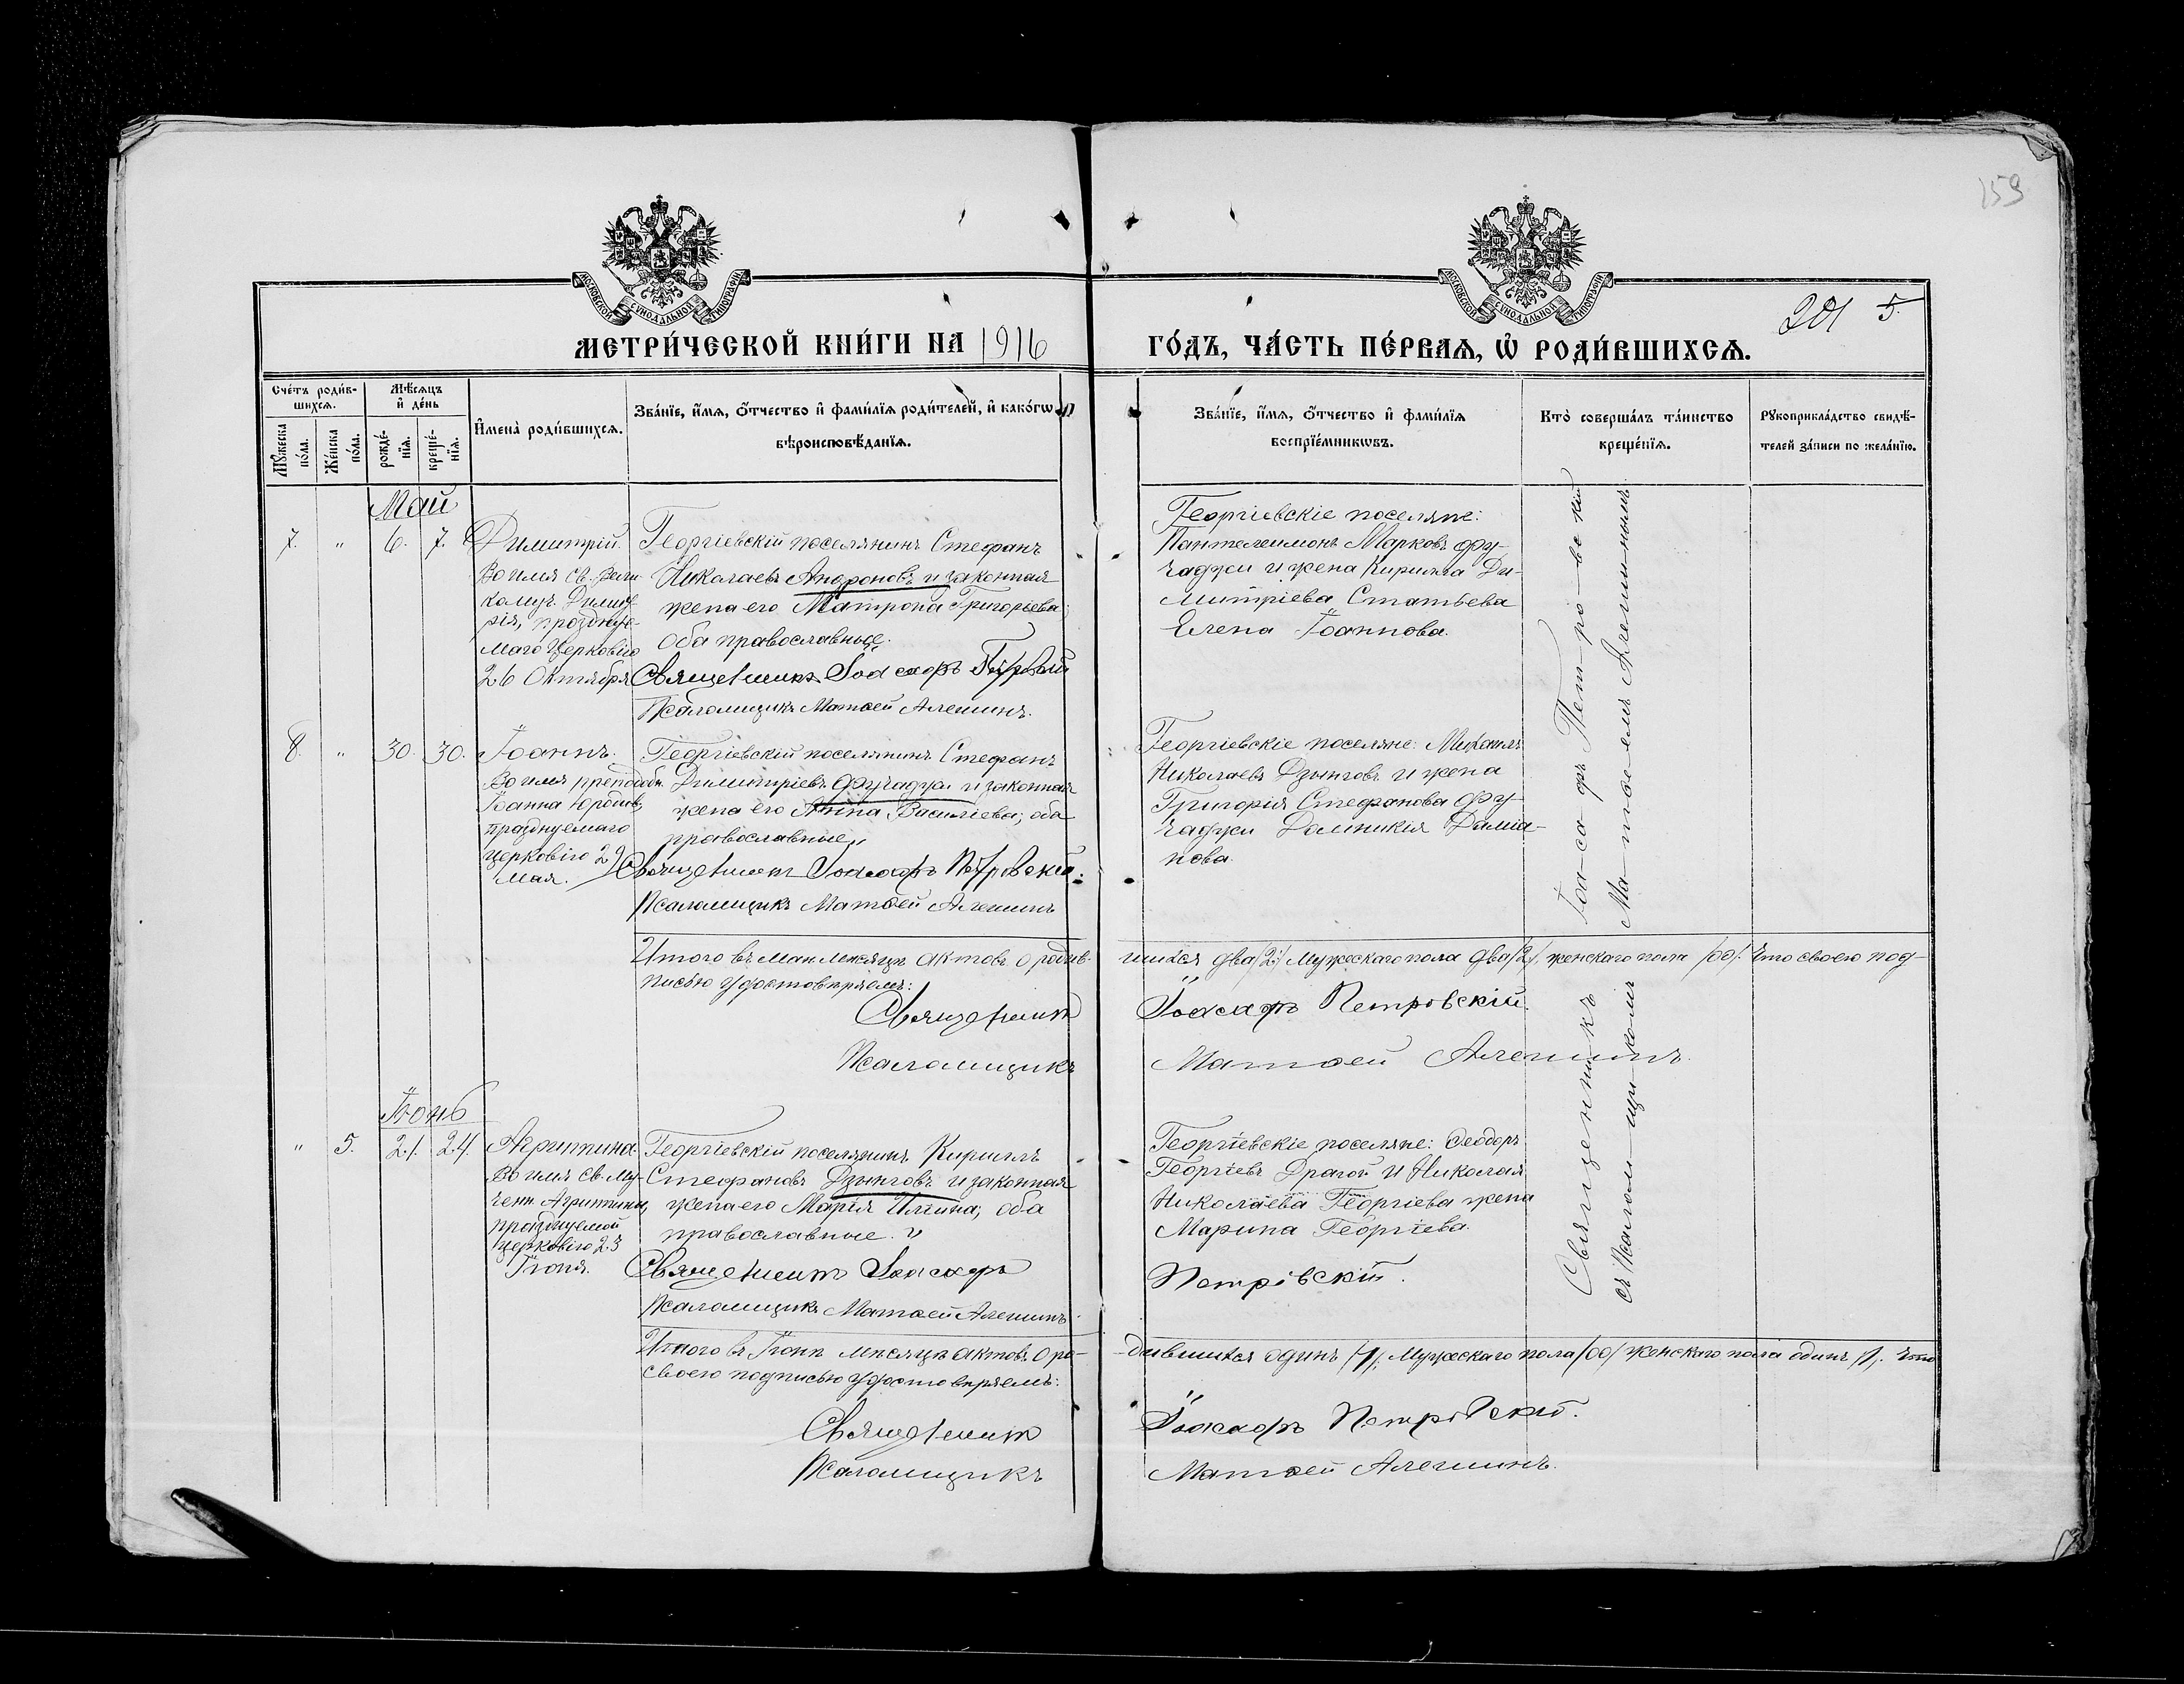 159
МОСКОВСКОЙ СѴНОДАЛЬНОЙ ТИПОГРАФІИ
МОСКОВСКОЙ СѴНОДАЛЬНОЙ ТИПОГРАФІИ
201 5.
МЕТРИ́ЧЕСКОЙ КНИ́ГИ НА 1916 ГО́ДЪ, ЧА́СТЬ ПЕ́РВАЯ, Ѡ҆ РОДИ́ВШИХСЯ.
Сче́тъ роди́в-
шихся.
Мꙋжеска по́ла.
Же́нска по́ла.
Мѣ́сяцъ и҆ де́нь
рожде́-
нїя.
креще́-
нїя.
И҆мена̀ роди́вшихся.
Зва́нїе, и҆́мя, ѻ҆́тчество и҆ фами́лїя роди́телей, и҆ како́гѡ
вѣроисповѣ́данїя.
Зва́нїе, и҆́мя, ѻ҆́тчество и҆ фами́лїя
воспрїе́мникѡвъ.
Кто̀ соверша́лъ та́инство
креще́нїя.
Рꙋкоприкла́дство свидѣ́-
телей за́писи по жела́нїю.
Май
7. " 6. 7. Димитрій.
Во имя св. вели-
комуч. Димит-
рія, празднуе-
маго Церковію
26 Октября
Георгіевскій поселянинъ Стефанъ
Николаевъ Андроновъ и законная
жена его Матрона Григоріева;
оба православные.
Священникъ Іоасафъ Петровскій
Псаломщикъ Матѳей Алешинъ.
Георгіевскіе поселяне:
Пантелеимонъ Марковъ Фу-
чаджи и жена Кирилла Ди-
митріева Статьева
Елена Іоаннова.
8. " 30. 30. Іоаннъ.
Во имя преподобн.
Іоанна Юродив,
празднуемаго
церковію 29
мая.
Георгіевскій поселянинъ Стефанъ
Димитріевъ Фучаджи и законная
жена его Анна Василіева; оба
православные.
Священникъ Іоасафъ Петровскій.
Псаломщикъ Матѳей Алешинъ
Георгіевскіе поселяне: Михаилъ
Николаевъ Дзынговъ и жена
Григорія Стефанова Фу-
чаджи Домникія Даміа-
нова.
Священникъ Іоасафъ Петровскій
съ Псаломщикомъ Матѳеемъ Алешинымъ.
Итого въ маѣ мѣсяцѣ актовъ о родив-
шихся два /2/ мужескаго пола два /2/, женскаго пола /00/. Что своею под-
писью удостовѣряемъ:
Священникъ Іоасафъ Петровскій.
Псаломщикъ Матѳей Алешинъ.
Іюнь
" 5. 21. 24. Агриппина
Во имя св. му-
чен. Агриппины,
празднуемой
церковію 23
Іюня.
Георгіевскій поселянинъ Кириллъ
Стефановъ Дзынговъ и законная
жена его Марія Илліина; оба
православные.
Священникъ Іоасафъ
Петровскій.
Псаломщикъ Матѳей Алешинъ.
Георгіевскіе поселяне: Ѳеодоръ
Георгіевъ Драгой и Николая
Николаева Георгіева жена
Марина Георгіева.
Итого въ Іюнѣ мѣсяцѣ актовъ о ро-
дившихся одинъ /1/, Мужескаго пола /00/ женскаго пола одинъ /1/. Что
своею подписью удостовѣряемъ:
Священникъ Іоасафъ Петровскій.
Псаломщикъ Матѳей Алешинъ.